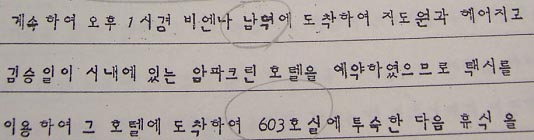 계속 하여 오후 1시경 비엔나 남역에 도착하여 지도원과 헤어지고
김승일이 시내에 있는 암파크린 호텔을 예약하였으므로 택시를
이용 하여 그 호텔에 도착하여 603호실에 투숙한 다음 휴식 을